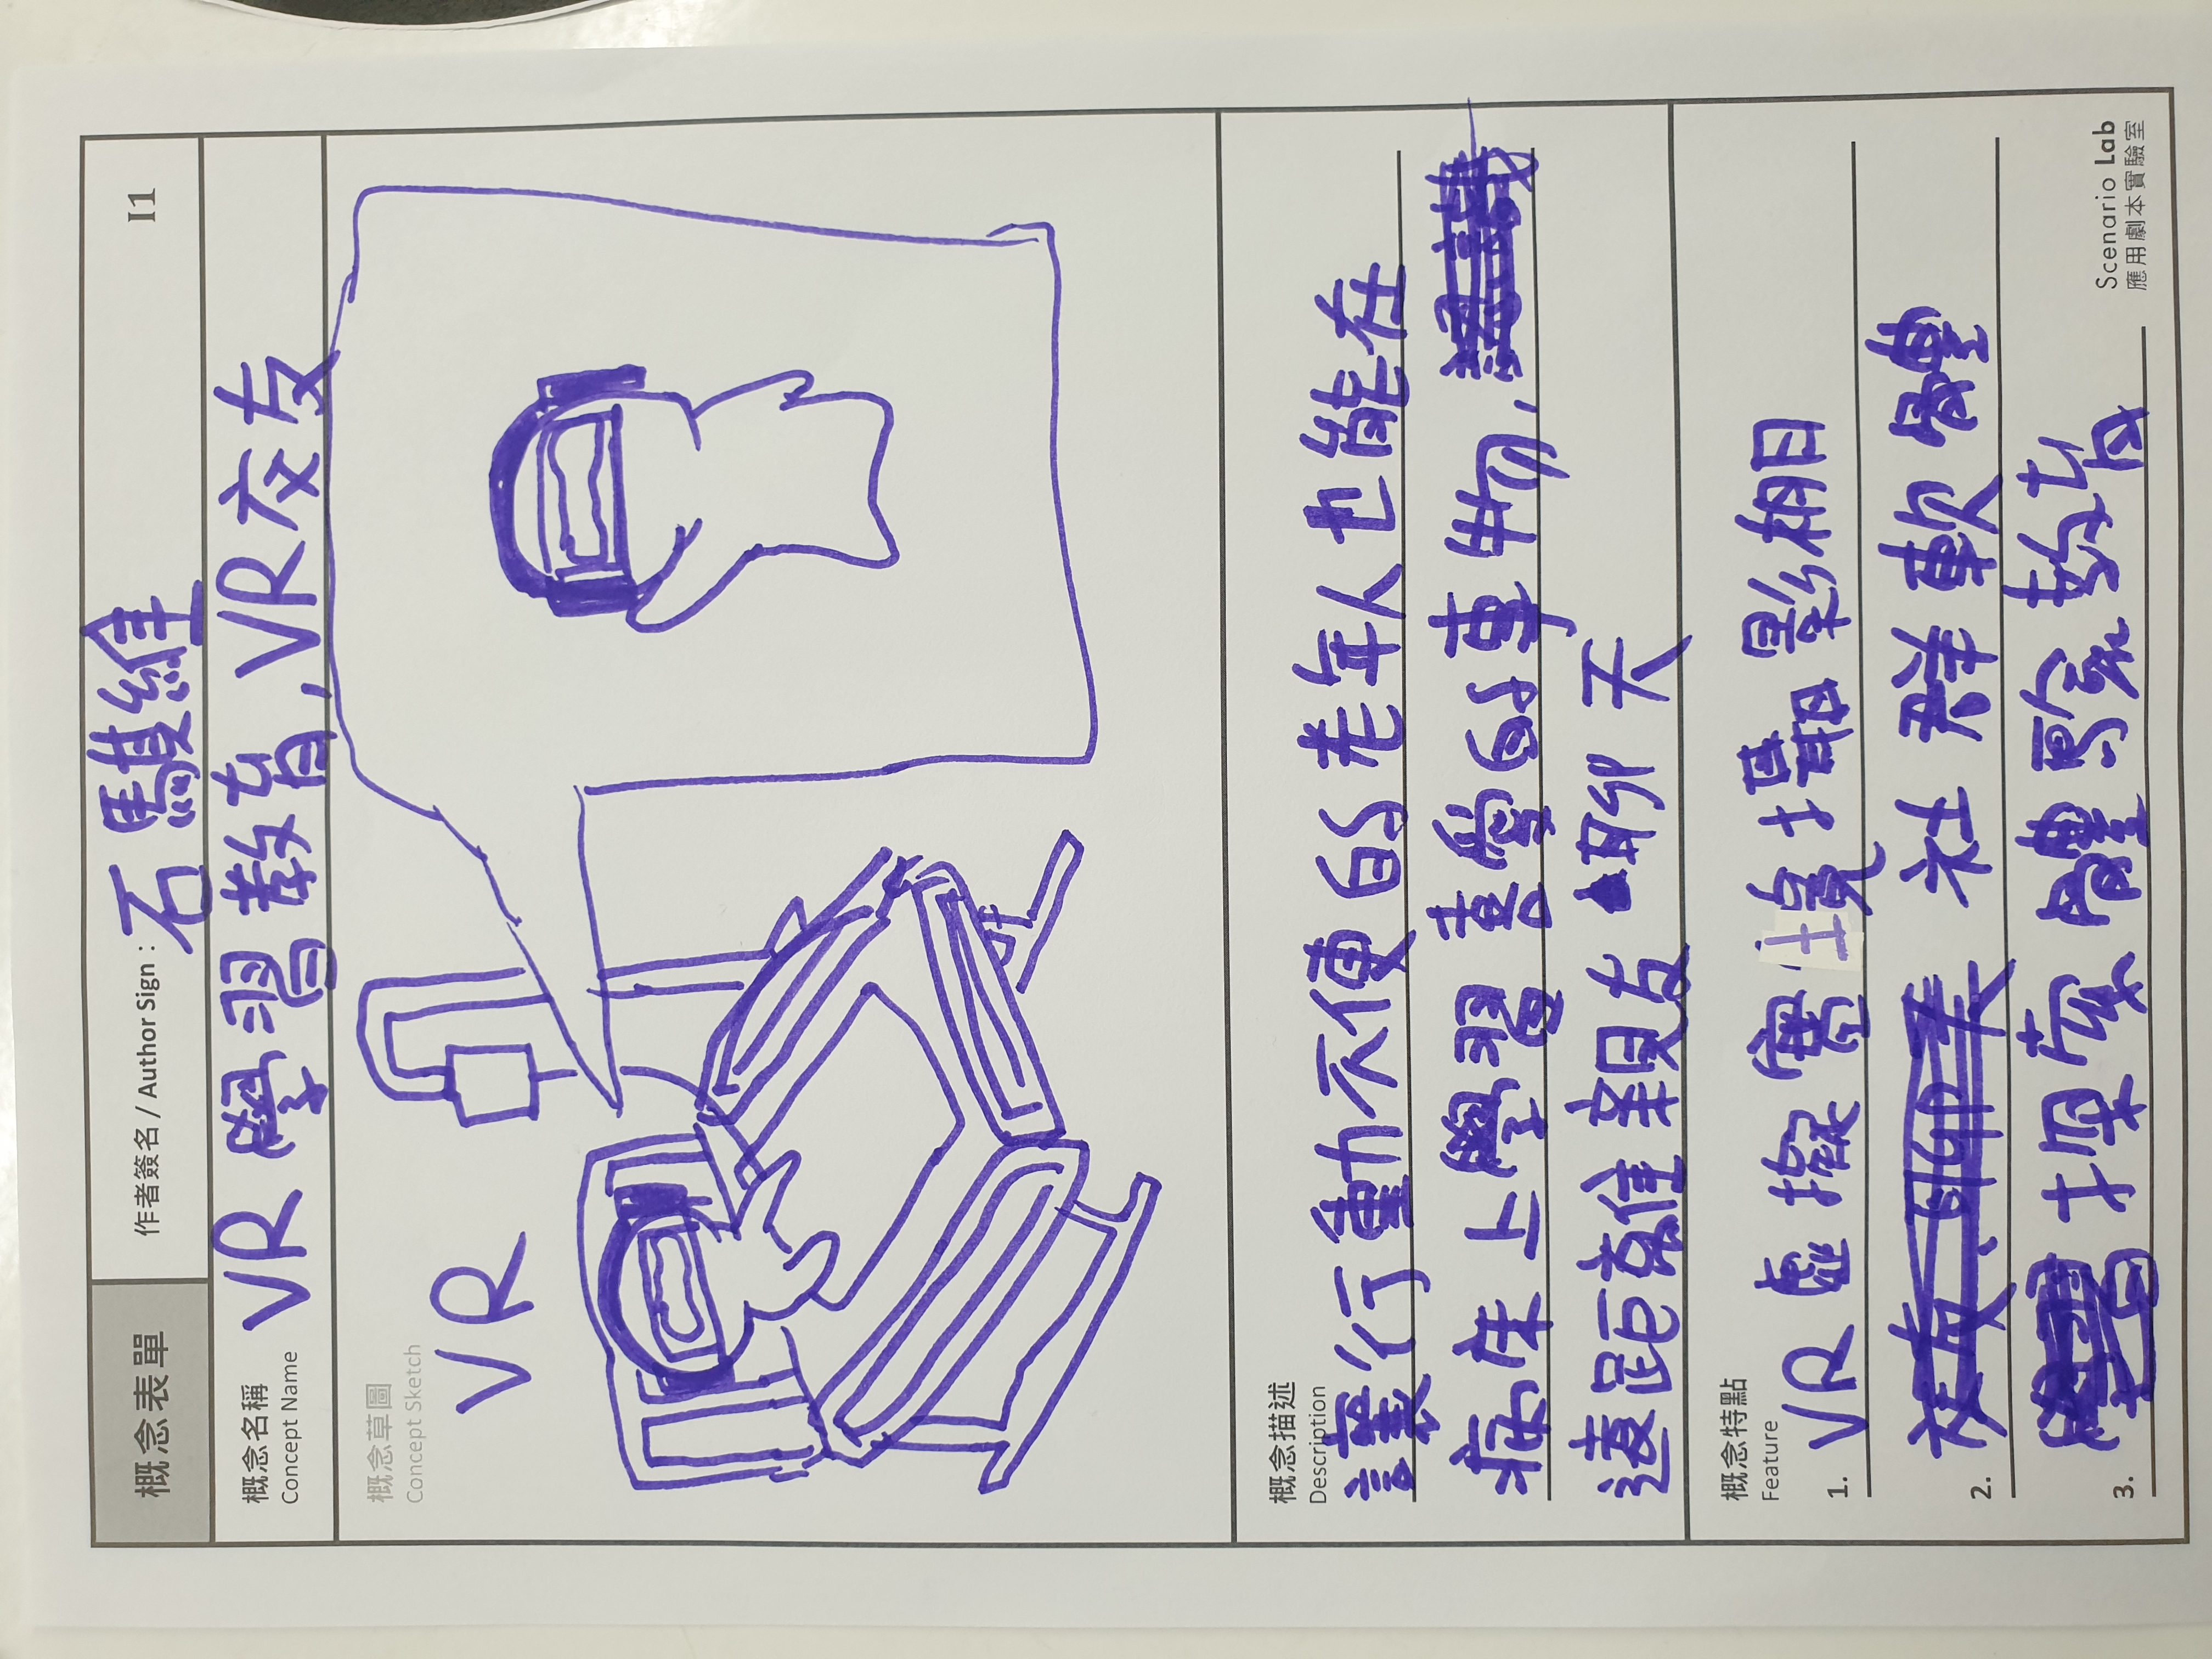 概念表單
作者簽名 / Author Sign：石騏維
I1
概念名稱
Concept Name
VR 學習教育,VR交友
概念草圖
Concept Sketch
VR
概念描述
Description
讓行動不便的老年人也能在
病床上學習喜愛的事物,
遠距離親友聊天
概念特點
Feature
1. VR 虛擬實境攝影棚
2. 社群軟體
3. 探索體驗教育
Scenario Lab
應用劇本實驗室